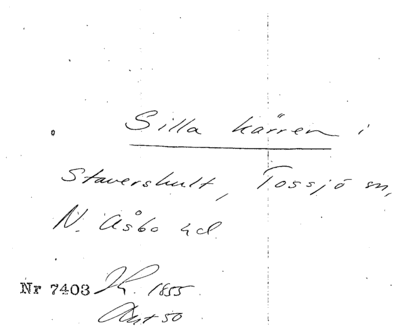 Silla kärren i
Stavershult, Tossjö sn,
N. Åsbo hd
Nr 7403 1855
Akt 50